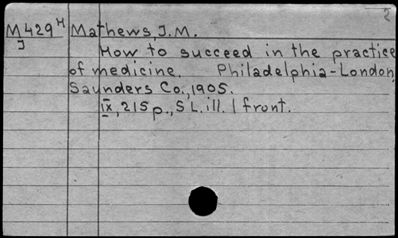 2
M429ᴴ Mathews, J.M.
J How to succeed in the practice
of medicine. Philadelphia-London,
Saunders Co., 1905.
IX, 215 p., 5 L. ill. 1 front.